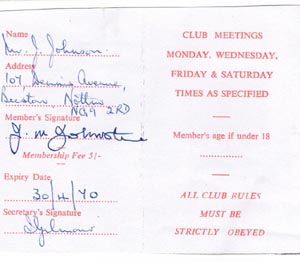 Name
Mr. J. Johnson.
Address
107, Dennis Avenue,
Beeston, Notts
NG9 2RD
Member's Signature
J. M. Johnston
Membership Fee 5/-
Expiry Date
30/4/70
Secretary's Signature
CLUB MEETINGS
MONDAY, WEDNESDAY,
FRIDAY & SATURDAY
TIMES AS SPECIFIED
Member's age if under 18
..............
ALL CLUB RULES
MUST BE
STRICTLY OBEYED